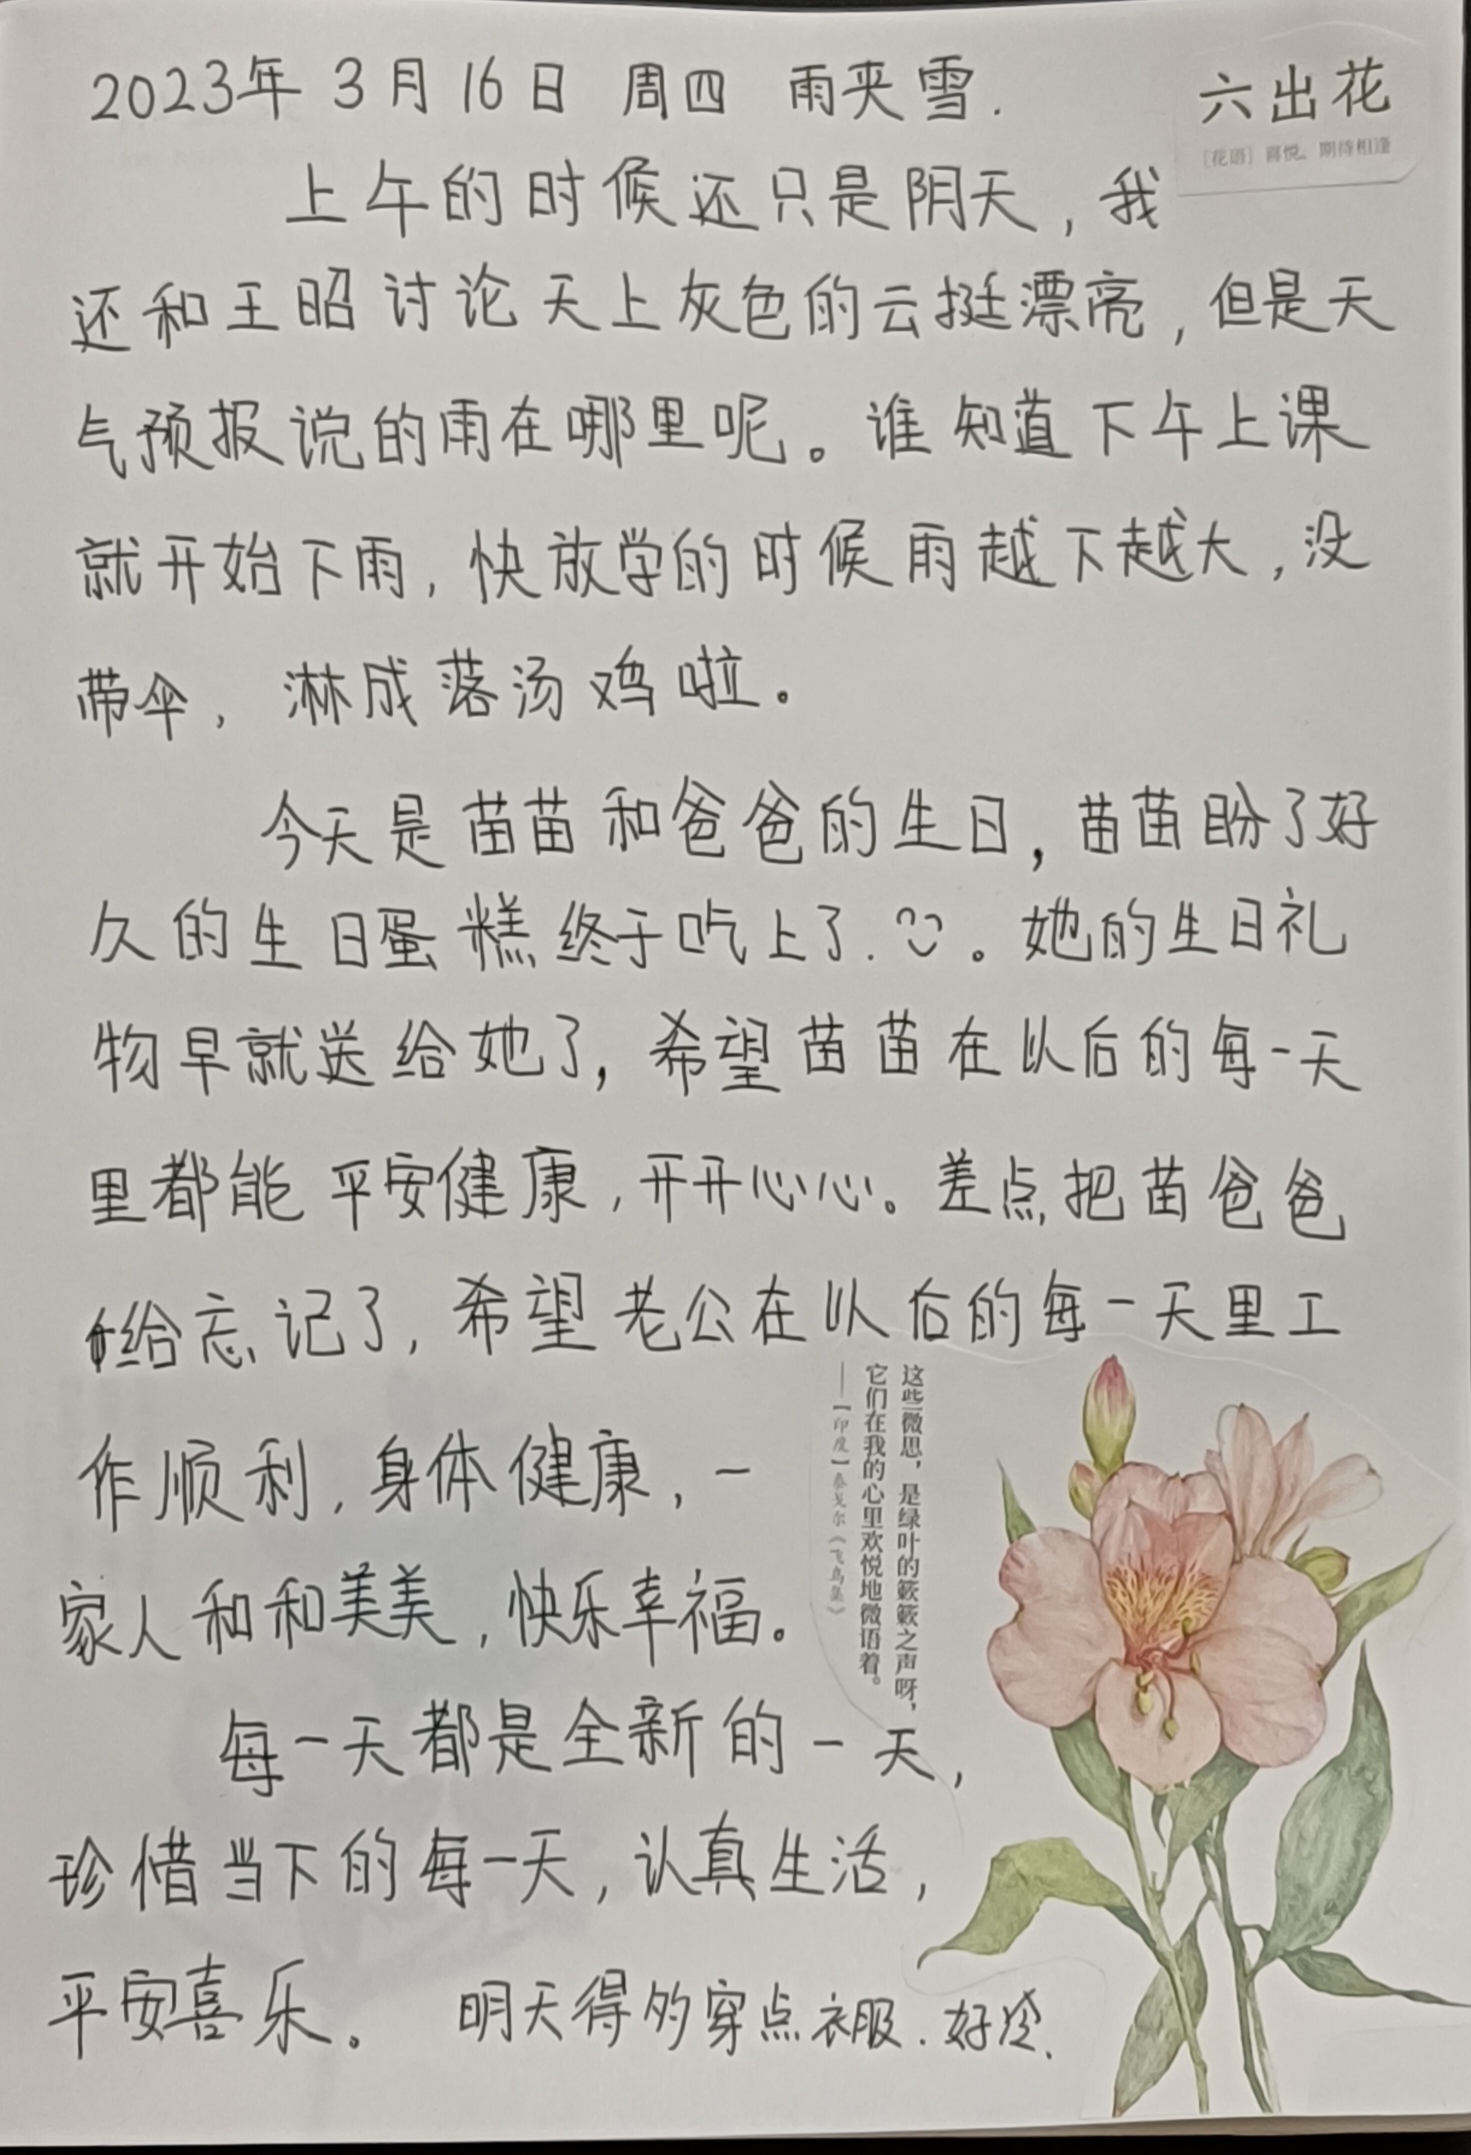 2023年 3月16日 周四 雨夹雪.
六出花
[花语] 喜悦。期待相逢
上午的时候还只是阴天,我
还和王昭讨论天上灰色的云挺漂亮,但是天
气预报说的雨在哪里呢。谁知道下午上课
就开始下雨,快放学的时候雨越下越大,没
带伞,淋成落汤鸡啦。
今天是苗苗和爸爸的生日,苗苗盼了好
久的生日蛋糕终于吃上了.。她的生日礼
物早就送给她了,希望苗苗在以后的每一天
里都能平安健康,开开心心。差点把苗爸爸
给忘记了,希望老公在以后的每一天里工
作顺利,身体健康,一
家人和和美美,快乐幸福。
每一天都是全新的一天,
珍惜当下的每一天,认真生活,
平安喜乐。 明天得多穿点衣服.好冷.
这些微思,是绿叶的簌簌之声呀,
它们在我的心里欢悦地微语着。
——[印度]泰戈尔《飞鸟集》